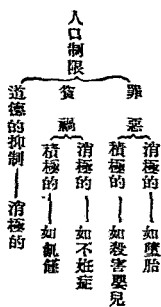 人口制限
罪惡
消極的——如墮胎
積極的——如殺害嬰兒
貧禍
消極的——如不妊症
積極的——如飢饉
道德的抑制——消極的